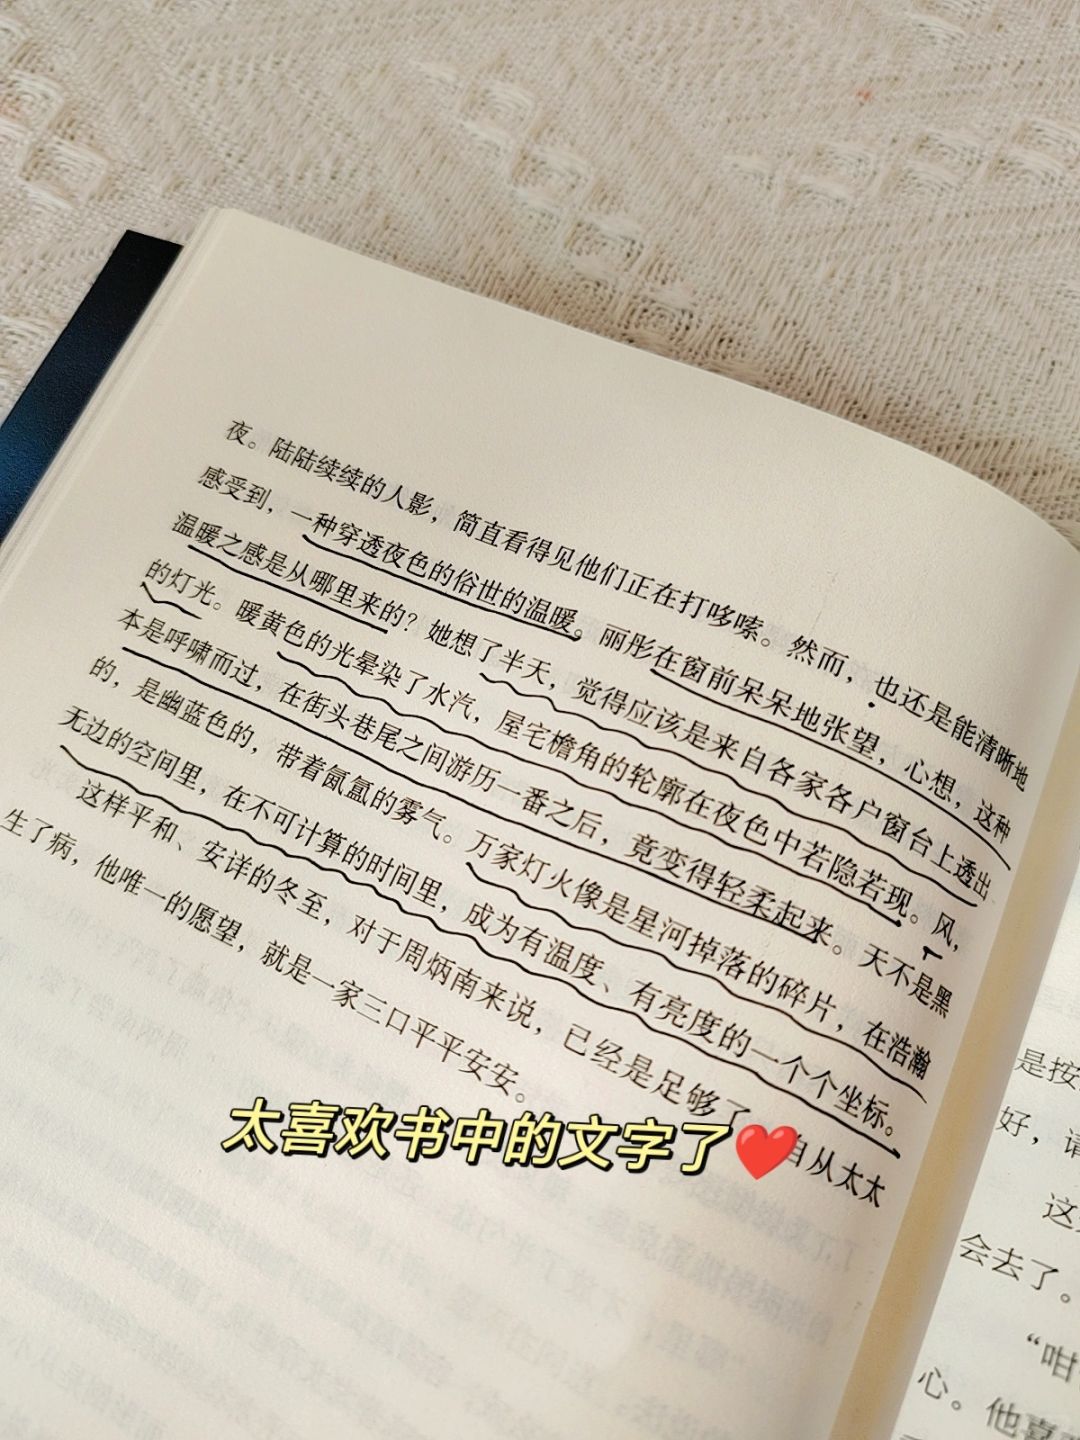 夜。陆陆续续的人影，简直看得见他们正在打哆嗦。然而，也还是能清晰地
感受到，一种穿透夜色的俗世的温暖。丽彤在窗前呆呆地张望，心想，这种
温暖之感是从哪里来的？她想了半天，觉得应该是来自各家各户窗台上透出
的灯光。暖黄色的光晕染了水汽，屋宅檐角的轮廓在夜色中若隐若现。风，
本是呼啸而过，在街头巷尾之间游历一番之后，竟变得轻柔起来。天不是黑
的，是幽蓝色的，带着氤氲的雾气。万家灯火像是星河掉落的碎片，在浩瀚
无边的空间里，在不可计算的时间里，成为有温度、有亮度的一个个坐标。
这样平和、安详的冬至，对于周炳南来说，已经是足够了 自从太太
生了病，他唯一的愿望，就是一家三口平平安安。
太喜欢书中的文字了❤️
是按
好，请
这
会去了。
“咁
心。他喜